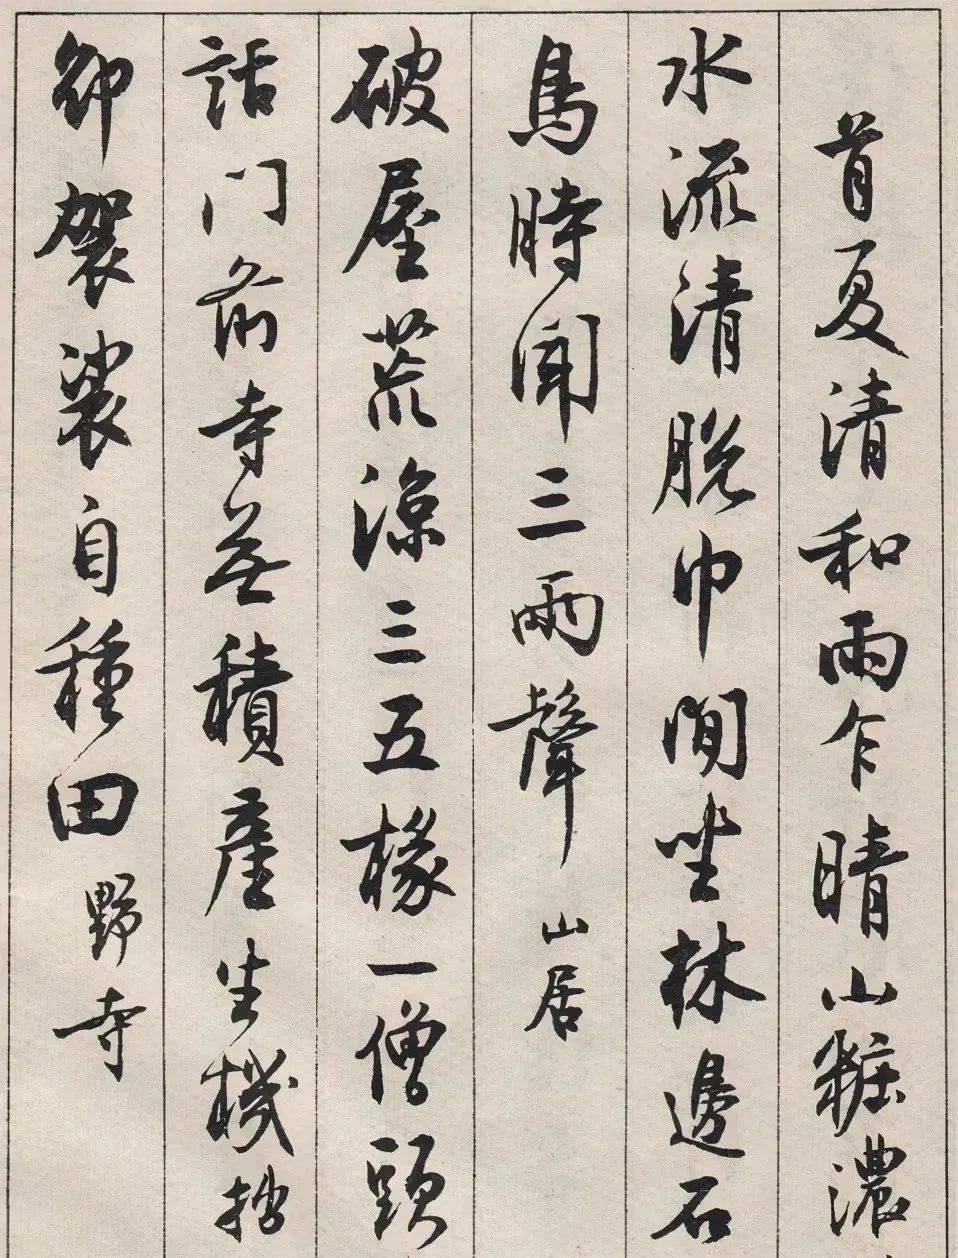 首夏清和雨乍晴山粧濃
水流清脫巾閒坐林邊石
鳥時聞三兩聲 山居
破屋荒涼三五椽一僧頭
話門前寺無積產生機拙
卻袈裟自種田 野寺